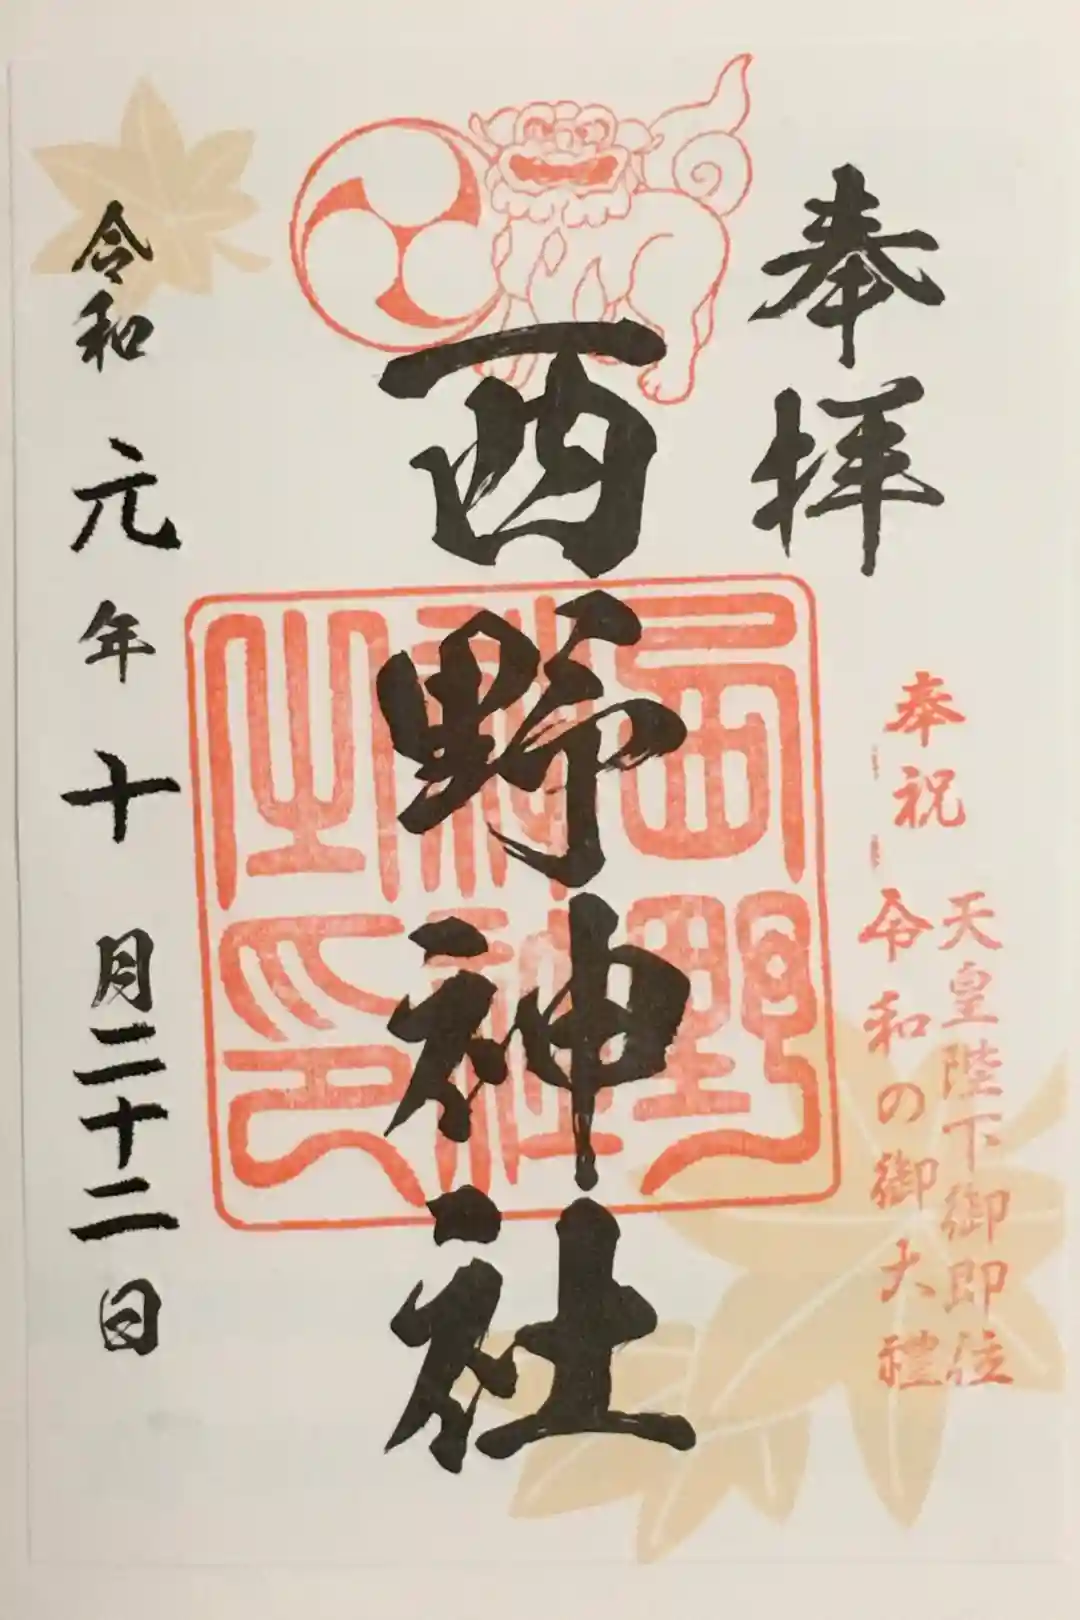 奉拝
奉祝
天皇陛下御即位
令和の御大禮
西野神社
西野
神社
之印
令和元年十月二十二日